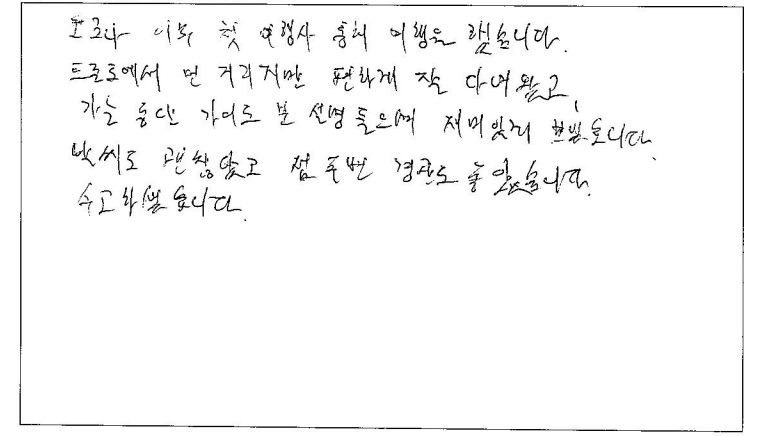 코로나 이후 첫 여행사 통해 여행을 했습니다.
트론토에서 먼 거리지만 편하게 잘 다녀왔고,
가는 동안 가이드 분 설명 들으며 재미있게 보냈습니다.
날씨도 괜찮았고 섬 주변 경관도 좋았습니다.
수고하셨습니다.